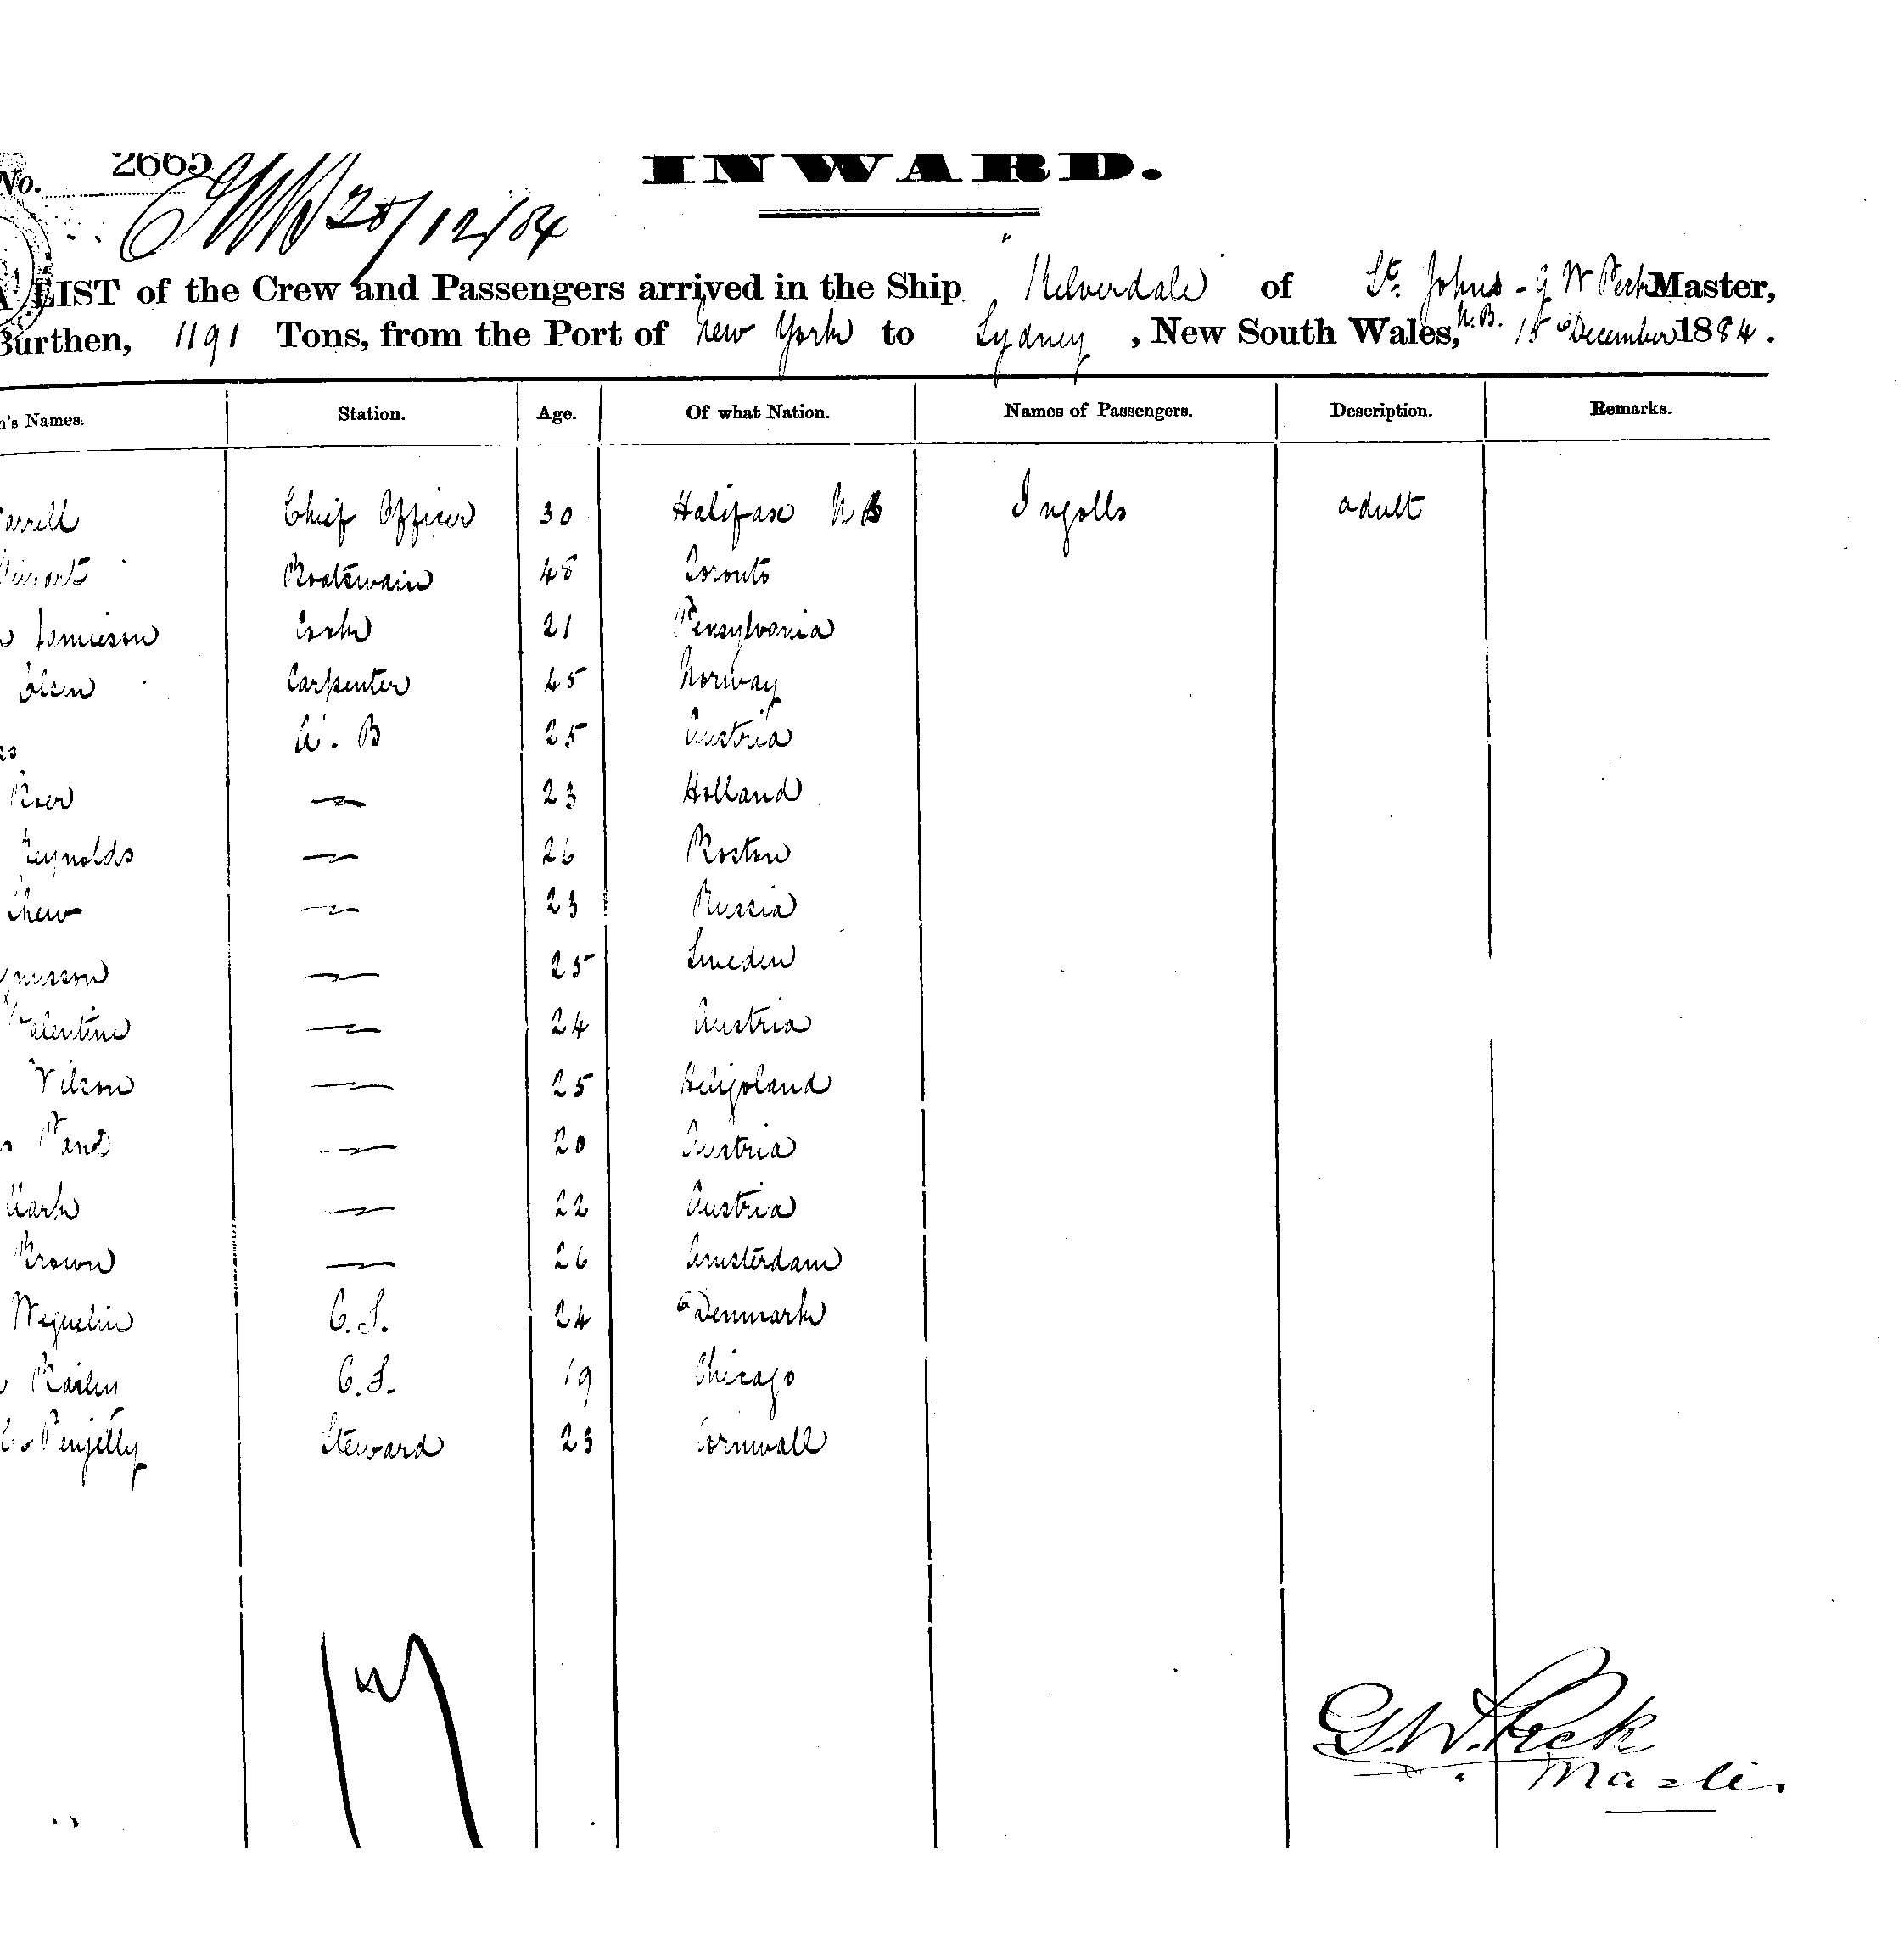 No. 2665
INWARD.
20/12/84
A LIST of the Crew and Passengers arrived in the Ship Kelverdale of St. Johns - G W Peck Master,
Burthen, 1191 Tons, from the Port of New York to Sydney, New South Wales, N.B. 15 December 1884.
n's Names. Station. Age. Of what Nation. Names of Passengers. Description. Remarks.
Chief Officer 30 Halifase Ingolls adult
Boatswain 48 Toronto
Jamieson Cook 21 Pensylvania
Olsen Carpenter 45 Norway
A. B 25 Austria
23 Holland
Reynolds 26 Boston
23 Russia
25 Sweden
Valentine 24 Austria
Wilson 25 Heligoland
20 Austria
22 Austria
Brown 26 Amsterdam
Weguelin O.S. 24 Denmark
Bailey O.S. 19 Chicago
Penjelly Steward 23 Cornwall
17
G. W. Peck
Master